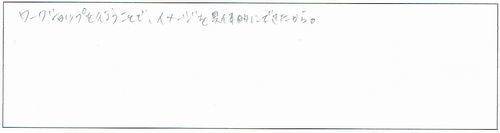 ワークショップを行うことで、イメージを具体的にできたから。